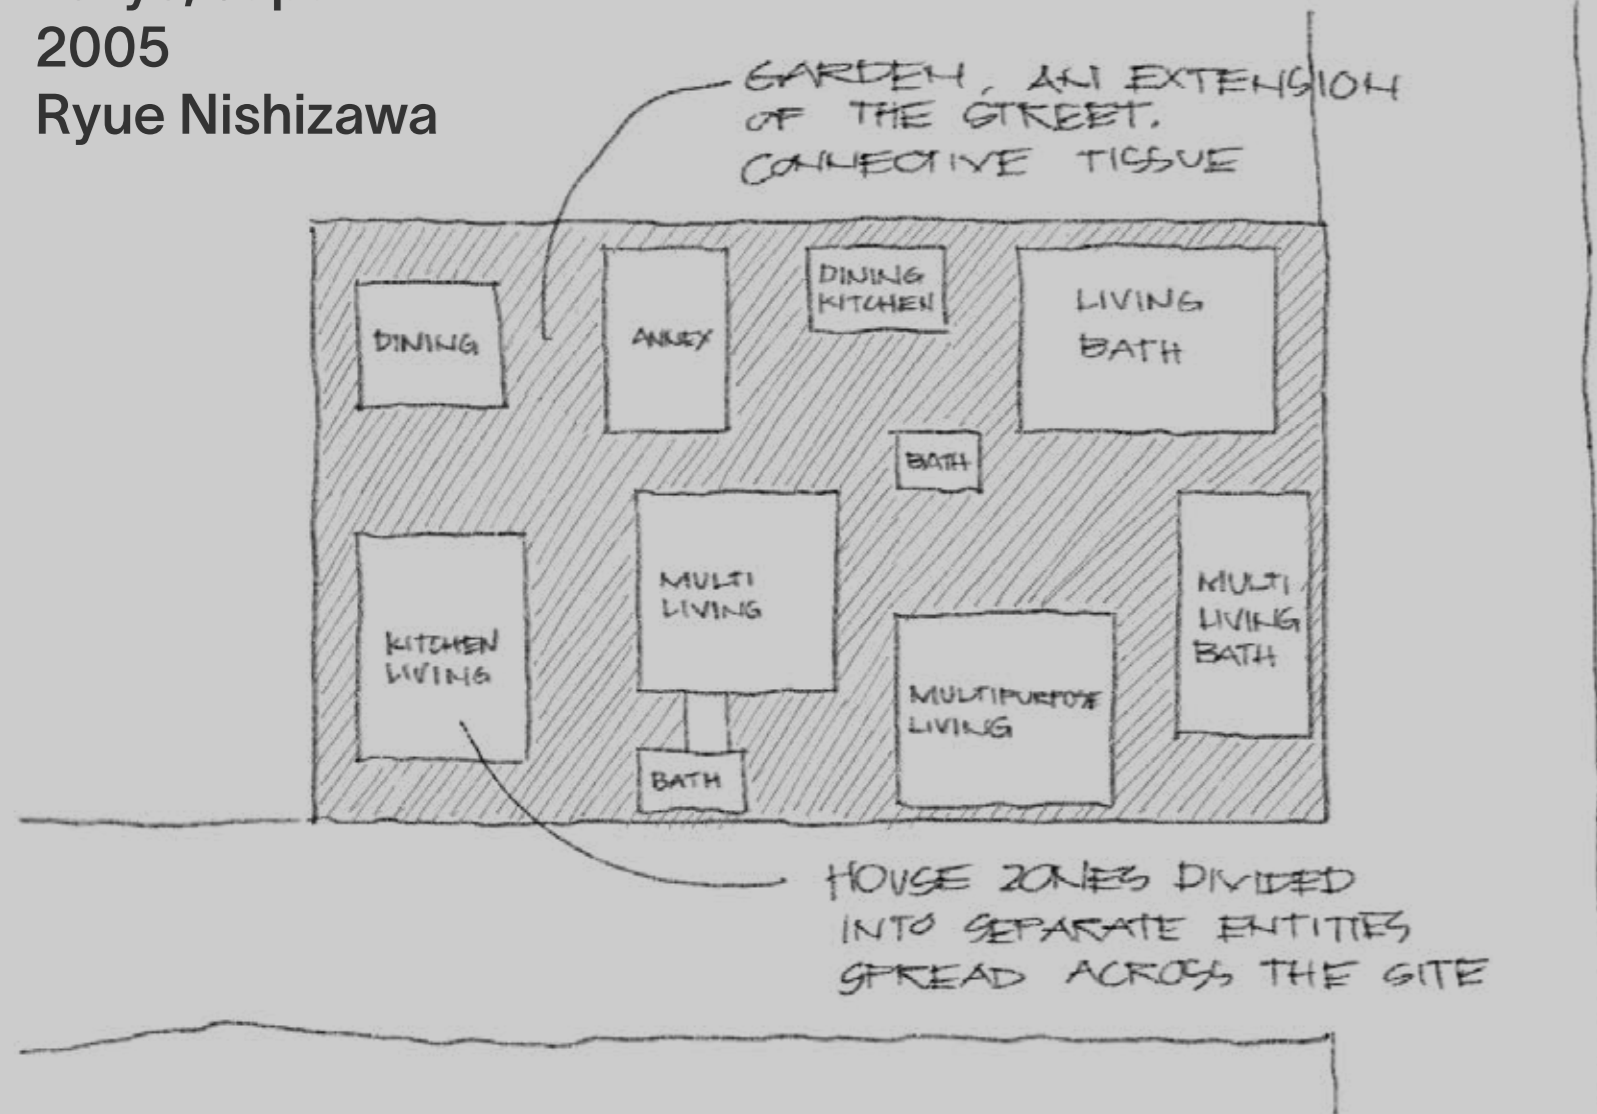 2005
Ryue Nishizawa
GARDEN, AN EXTENSION
OF THE STREET.
CONNECTIVE TISSUE
DINING
ANNEX
DINING
KITCHEN
LIVING
BATH
BATH
MULTI
LIVING
MULTI
LIVING
BATH
KITCHEN
LIVING
MULTIPURPOSE
LIVING
BATH
HOUSE ZONES DIVIDED
INTO SEPARATE ENTITIES
SPREAD ACROSS THE SITE